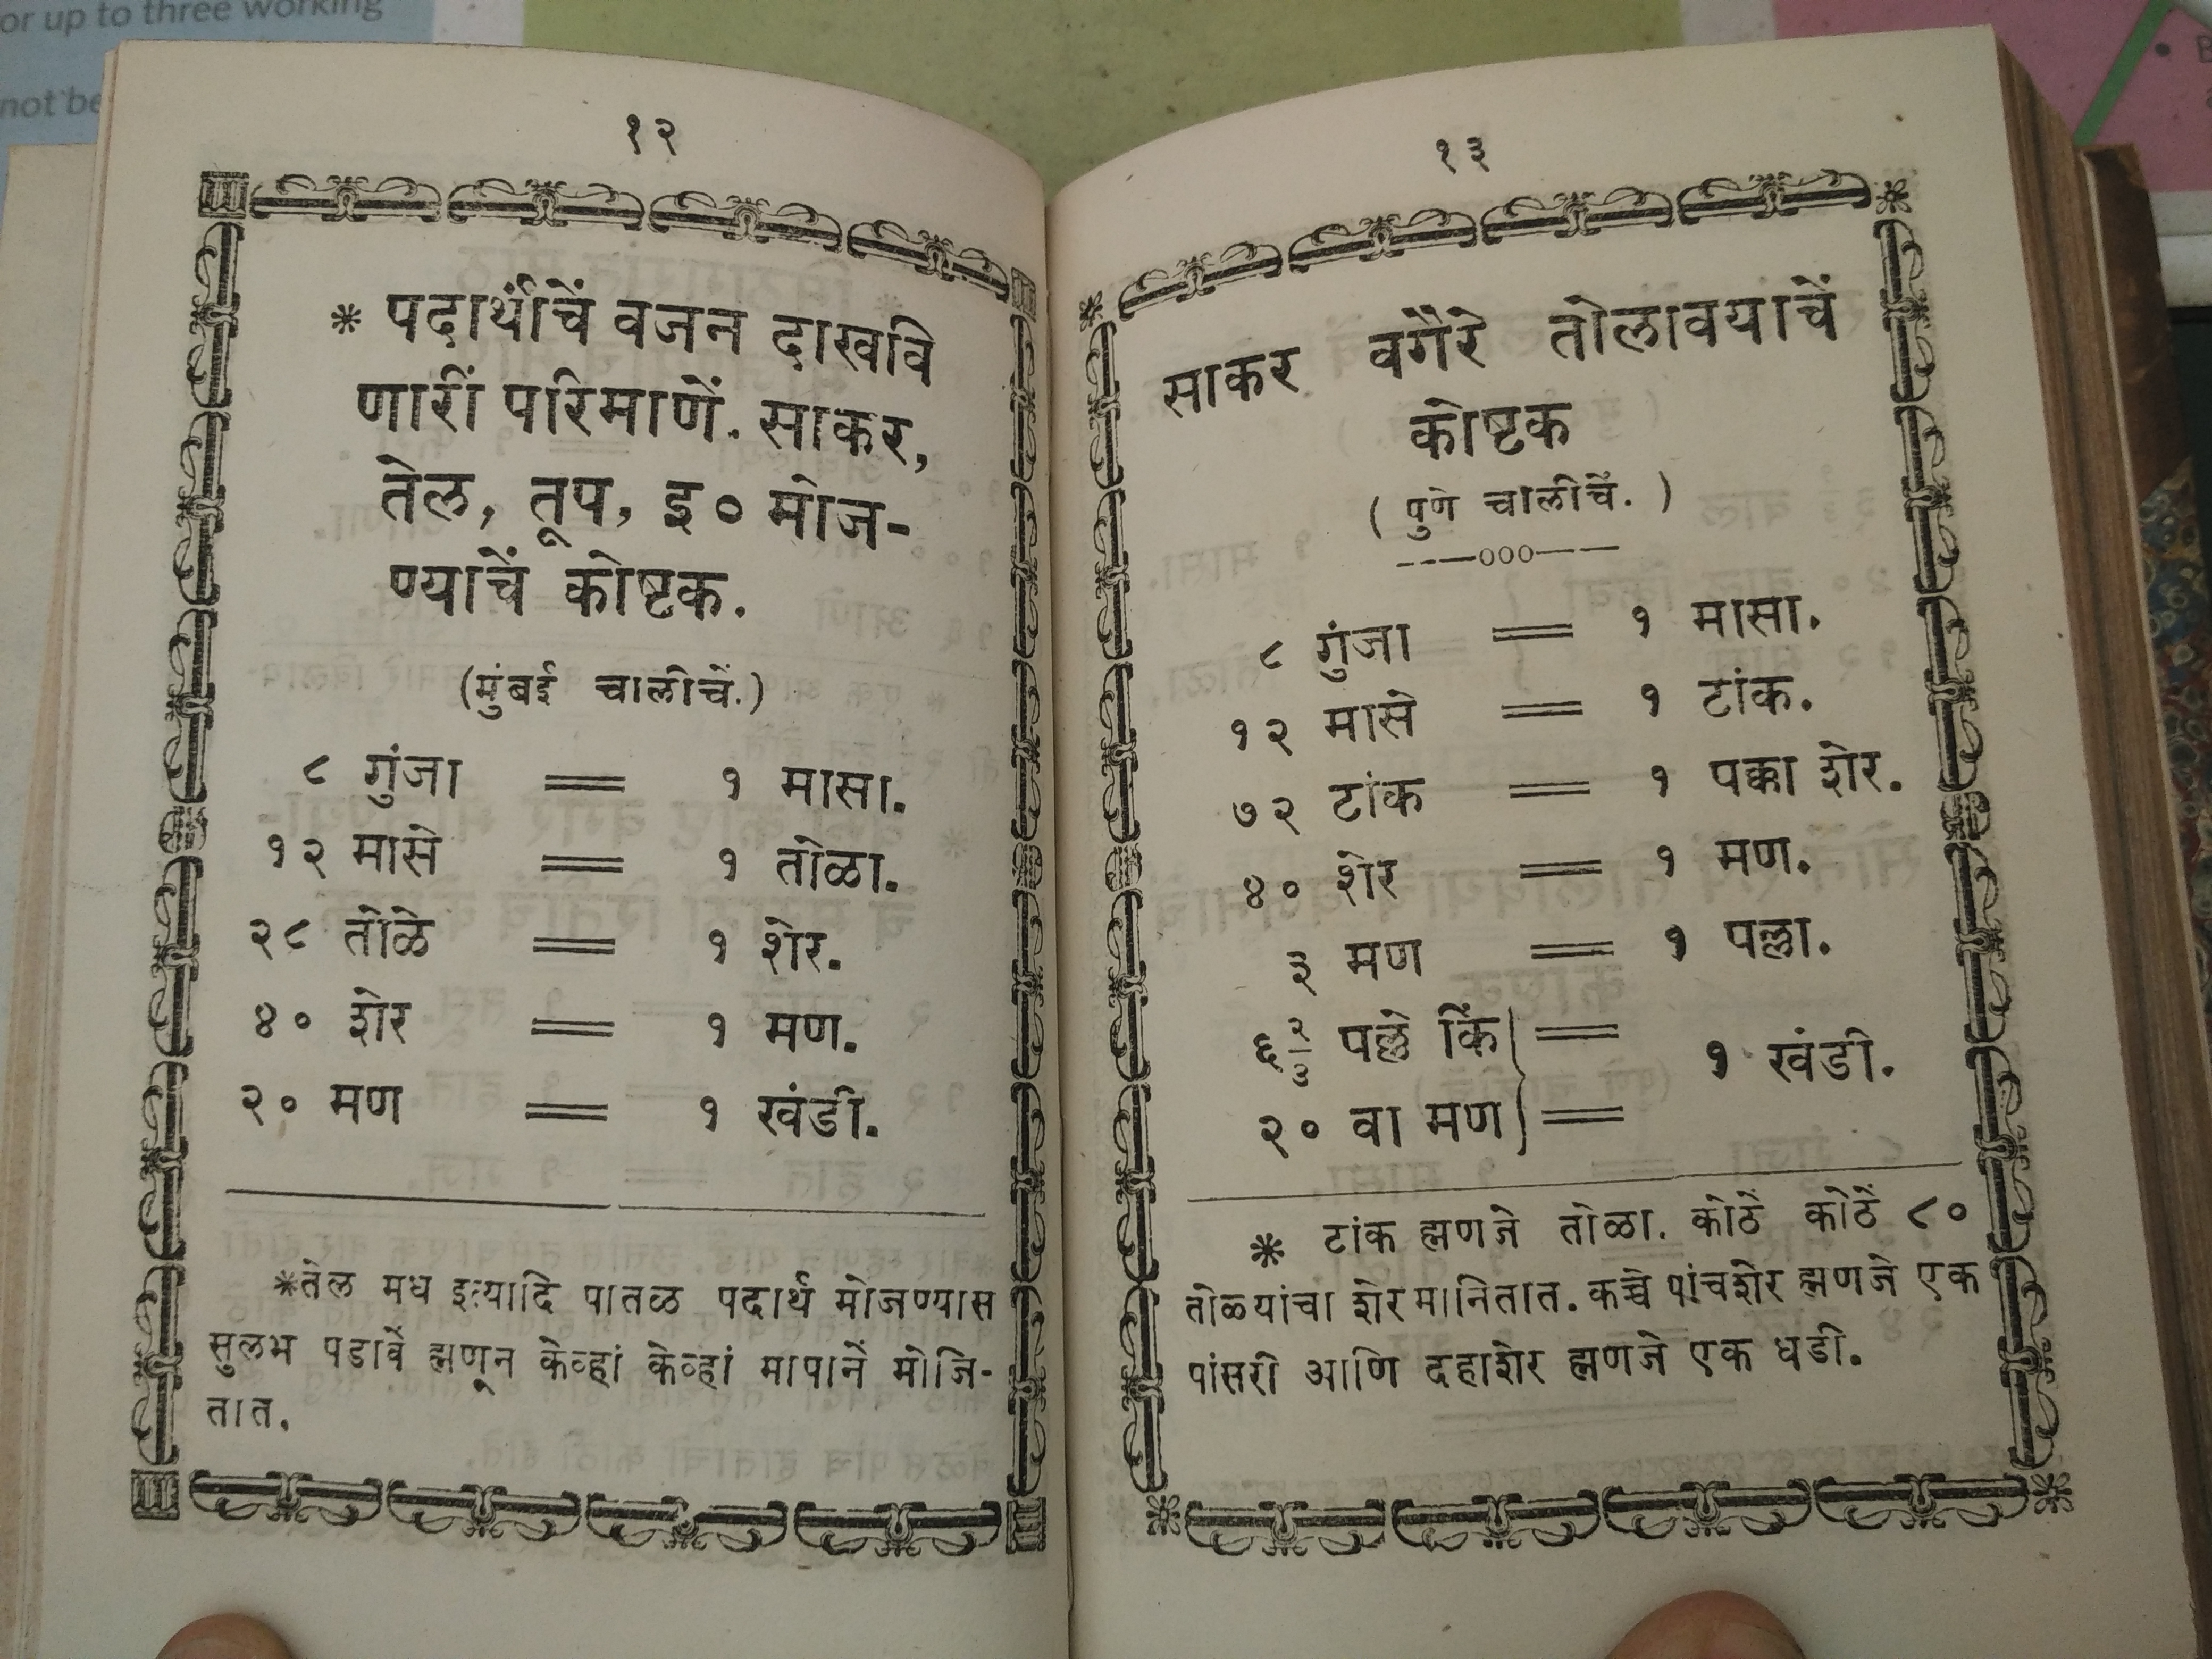 or up to three working
not be
१२
* पदार्थांचें वजन दाखवि
णारीं परिमाणें. साकर,
तेल, तूप, इ० मोज-
ण्याचें कोष्टक.
(मुंबई चालीचें.)
८ गुंजा = १ मासा.
१२ मासे = १ तोळा.
२८ तोळे = १ शेर.
४० शेर = १ मण.
२० मण = १ खंडी.
*तेल मध इत्यादि पातळ पदार्थ मोजण्यास
सुलभ पडावें ह्मणून केव्हां केव्हां मापानें मोजि-
तात.
१३
साकर वगैरे तोलावयाचें
कोष्टक
( पुणे चालीचें. )
---ooo---
८ गुंजा = १ मासा.
१२ मासे = १ टांक.
७२ टांक = १ पक्का शेर.
४० शेर = १ मण.
३ मण = १ पल्ला.
६ २/३ पल्ले किं } =
१ खंडी.
२० वा मण } =
* टांक ह्मणजे तोळा. कोठें कोठें ८०
तोळ्यांचा शेर मानितात. कच्चे पांचशेर ह्मणजे एक
पांसरी आणि दहाशेर ह्मणजे एक धडी.